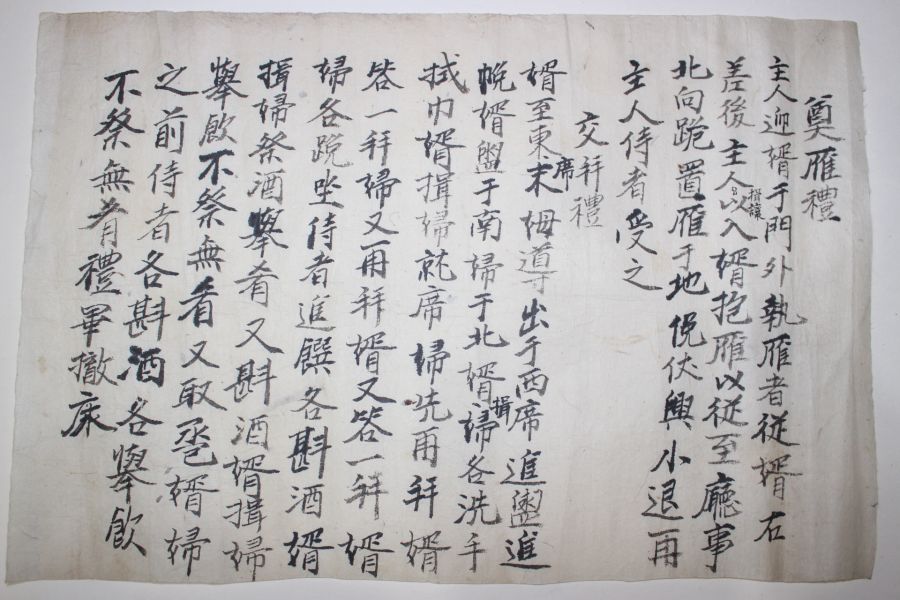 奠雁禮
主人迎婿于門外執雁者從婿右
差後主人揖讓以入婿抱雁以從至廳事
北向跪置雁于地俛伏興小退再
主人侍者受之
交拜禮
婿至東席末姆導出于西席進盥進
帨婿盥于南婦于北婿揖婦各洗手
拭巾婿揖婦就席婦先再拜婿
答一拜婦又再拜婿又答一拜婿
婦各跪坐侍者進饌各斟酒婿
揖婦祭酒擧肴又斟酒婿揖婦
擧飮不祭無肴又取巹婿婦
之前侍者各斟酒各擧飮
不祭無肴禮畢撤床